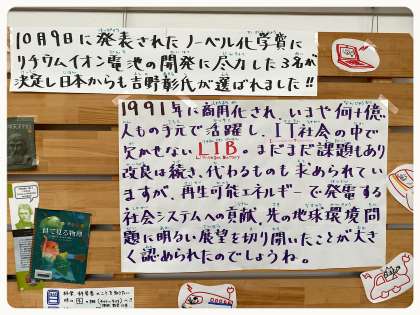 10月9日に発表されたノーベル化学賞に
リチウムイオン電池の開発に尽力した3名が
決定し日本からも吉野彰氏が選ばれました!!
1991年に商用化され、いまや何十億
人もの手元で活躍し、IT社会の中で
欠かせないLIB。まだまだ課題もあり
改良は続き、代わるものも求められてい
ますが、再生可能エネルギーで発電する
社会システムへの貢献、先の地球環境問
題に明るい展望を切り開いたことが大き
く認められたのでしょうね。